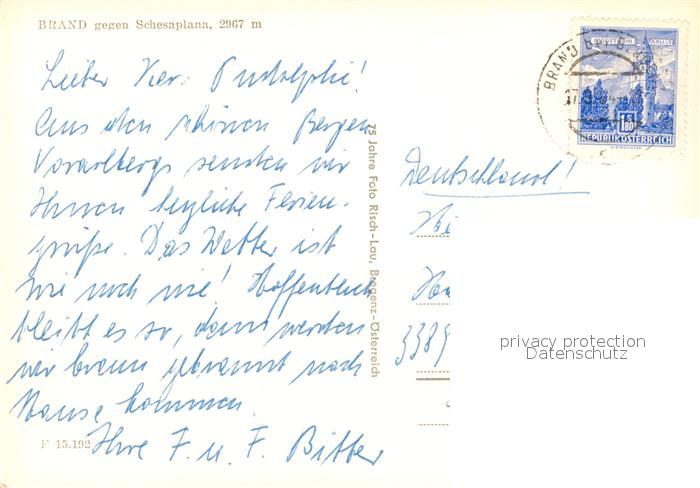 BRAND gegen Schesaplana, 2967 m
Lieber Herr Rudolphi!
Aus den schönen Bergen
Vorarlbergs senden wir
Ihnen herzliche Ferien-
grüße. Das Wetter ist
wie noch nie! Hoffentlich
bleibt es so, dann werden
wir braun gebrannt nach
Hause kommen.
Ihre F. u. F. Bitter
F 15.192
75 Jahre Foto Risch-Lau, Bregenz-Österreich
BRAND bei
S 1.80
REPUBLIK ÖSTERREICH
Deutschland!
3389
privacy protection
Datenschutz